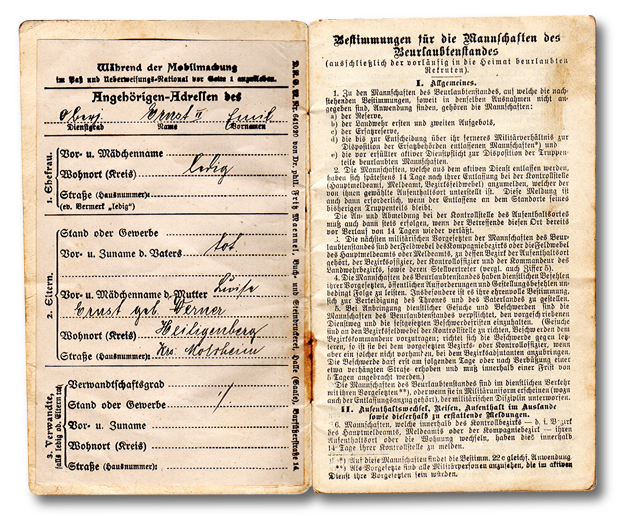 Während der Mobilmachung
im Paß und Ueberweisungs-National vor Seite 1 anzukleben.
Angehörigen-Adressen des
Oberj. Ernst II Emil
Dienstgrad Name Vornamen
1. Ehefrau.
Vor- u. Mädchenname
ledig
Wohnort (Kreis)
Straße (Hausnummer):
(ev. Vermerk „ledig")
2. Eltern.
Stand oder Gewerbe
Vor- u. Zuname d. Vaters tot
Vor- u. Mädchenname d. Mutter Luise
Ernst geb. Werner
Wohnort (Kreis) Heiligenberg
Straße (Hausnummer): Krs. Molsheim
3. Verwandte,
falls ledig od. Eltern tot
Verwandtschaftsgrad
Stand oder Gewerbe
Vor- u. Zuname
Wohnort (Kreis)
Straße (Hausnummer):
D. R. G. M. Nr. 641692 von Dr. phil. Fritz Maennel, Buch- und Steindruckerei, Halle (Saale), Barfüßerstraße 14
Bestimmungen für die Mannschaften des
Beurlaubtenstandes
(ausschließlich der vorläufig in die Heimat beurlaubten
Rekruten).
I. Allgemeines.
1. Zu den Mannschaften des Beurlaubtenstandes, auf welche die nach-
stehenden Bestimmungen, soweit in denselben Ausnahmen nicht an-
gegeben sind, Anwendung finden, gehören die Mannschaften:
a) der Reserve,
b) der Landwehr ersten und zweiten Aufgebots,
c) der Ersatzreserve,
d) die bis zur Entscheidung über ihr ferneres Militärverhältnis zur
Disposition der Ersatzbehörden entlassenen Mannschaften*) und
e) die vor erfüllter aktiver Dienstpflicht zur Disposition der Truppen-
teile beurlaubten Mannschaften.
2. Die Mannschaften, welche aus dem aktiven Dienst entlassen werden,
haben sich spätestens 14 Tage nach ihrer Entlassung bei der Kontrollstelle
(Hauptmeldeamt, Meldeamt, Bezirksfeldwebel) anzumelden, welcher der
von ihnen gewählte Aufenthaltsort unterstellt ist. Diese Meldung ist
auch dann erforderlich, wenn der Entlassene an dem Standorte seines
bisherigen Truppenteils bleibt.
Die An- und Abmeldung bei der Kontrollstelle des Aufenthaltsortes
muß auch dann stets erfolgen, wenn der Betreffende diesen Ort bereits
vor Verlauf von 14 Tagen wieder verläßt.
3. Die nächsten militärischen Vorgesetzten der Mannschaften des Beur-
laubtenstandes sind der Feldwebel des Kompagniebezirks oder die Feldwebel
des Hauptmeldeamts oder Meldeamts, zu dessen Bezirk der Aufenthaltsort
gehört, der Bezirksoffizier, der Kontrolloffizier und der Kommandeur des
Landwehrbezirks, sowie deren Stellvertreter (vergl. auch Ziffer 5).
4. Die Mannschaften des Beurlaubtenstandes haben dienstlichen Befehlen
ihrer Vorgesetzten, öffentlichen Aufforderungen und Gestellungsbefehlen un-
bedingt Folge zu leisten. Insbesondere ist es ihre ehrenvolle Bestimmung,
sich zur Verteidigung des Thrones und des Vaterlandes zu gestellen.
5. Bei Anbringung dienstlicher Gesuche und Beschwerden sind die
Mannschaften des Beurlaubtenstandes verpflichtet, den vorgeschriebenen
Dienstweg und die festgesetzten Beschwerdefristen einzuhalten. (Gesuche
sind an den Bezirksfeldwebel der Kontrollstelle zu richten, Beschwerden dem
Bezirkskommandeur vorzutragen; richtet sich die Beschwerde gegen letz-
teren, so ist sie bei dem vorgesetzten Bezirks- oder Kontrolloffizier, wenn
aber ein solcher nicht vorhanden, bei dem Bezirksadjutanten anzubringen.
Die Beschwerde darf erst am folgenden Tage oder nach Verbüßung einer
etwa verhängten Strafe erhoben und muß innerhalb einer Frist von
5 Tagen angebracht werden.)
Die Mannschaften des Beurlaubtenstandes sind im dienstlichen Verkehr
mit ihren Vorgesetzten**), oder wenn sie in Militäruniform erscheinen (wozu
auch der Entlassungsanzug gehört), der militärischen Disziplin unterworfen.
II. Aufenthaltswechsel, Reisen, Aufenthalt im Auslande
sowie dieserhalb zu erstattende Meldungen.
6. Mannschaften, welche innerhalb des Kontrollbezirks — d. i. Bezirk
des Hauptmeldeamts, Meldeamts oder der Kompagniebezirk — ihren
Aufenthaltsort oder die Wohnung wechseln, haben dies innerhalb
14 Tage ihrer Kontrollstelle zu melden.
*) Auf diese Mannschaften findet die Bestimm. 22 c gleichf. Anwendung
**) Als Vorgesetzte sind alle Militärpersonen anzusehen, die im aktiven
Dienst ihre Vorgesetzten sein würden.